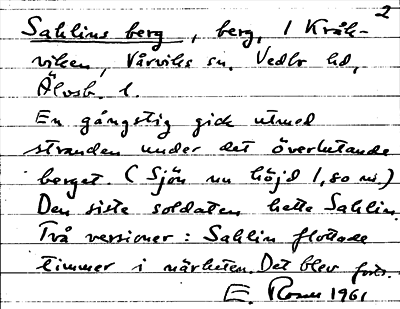 2
Sahlins berg, berg, i Kråk-
viken, Vårviks sn. Vedbo hd,
Älvsb. l.
En gångstig gick utmed
stranden under det överlutande
berget. (Sjön nu höjd 1,80 m.)
Den siste soldaten hette Sahlin.
Två versioner: Sahlin flottade
timmer i närheten. Det blev forts.
E. Rosen 1961